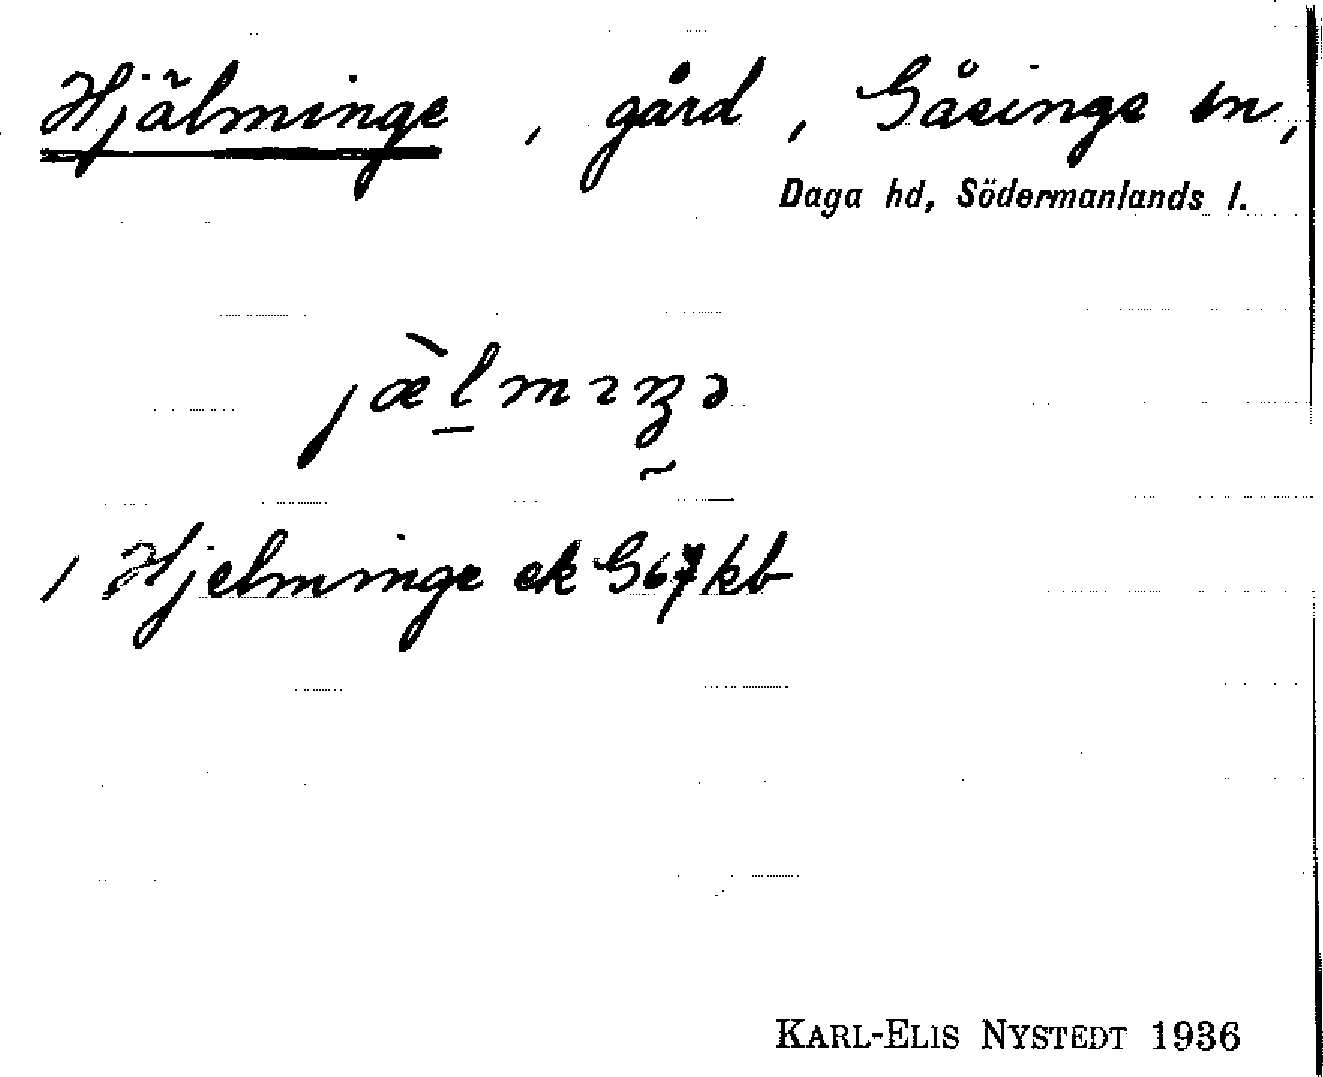 Hjälminge, gård, Gåsinge sn,
Daga hd, Södermanlands l.
jæ̀l̠mıŋə
/ Hjelminge ek G67 kb
KARL-ELIS NYSTEDT 1936